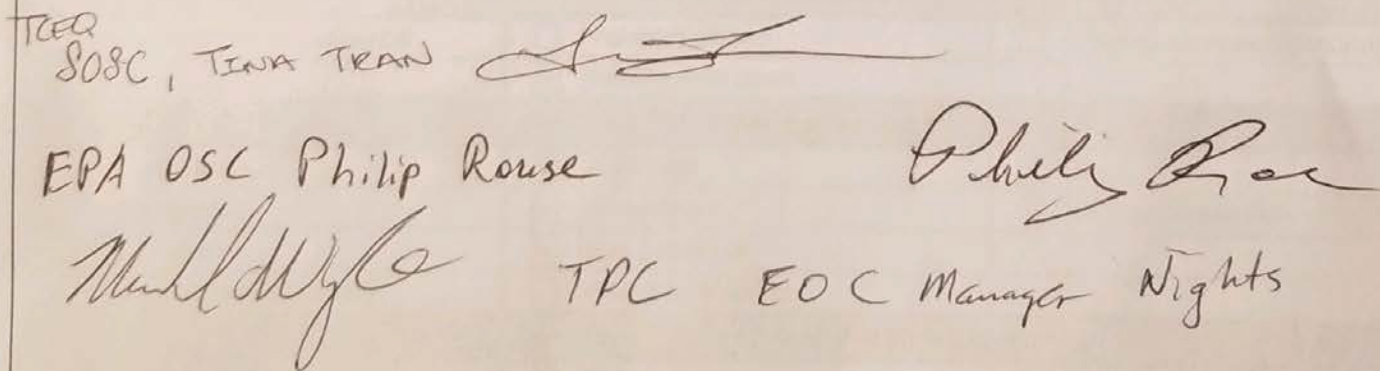 TCEQ
SOSC, TINA TRAN
EPA OSC Philip Rouse Philip
TPC EOC Manager Nights